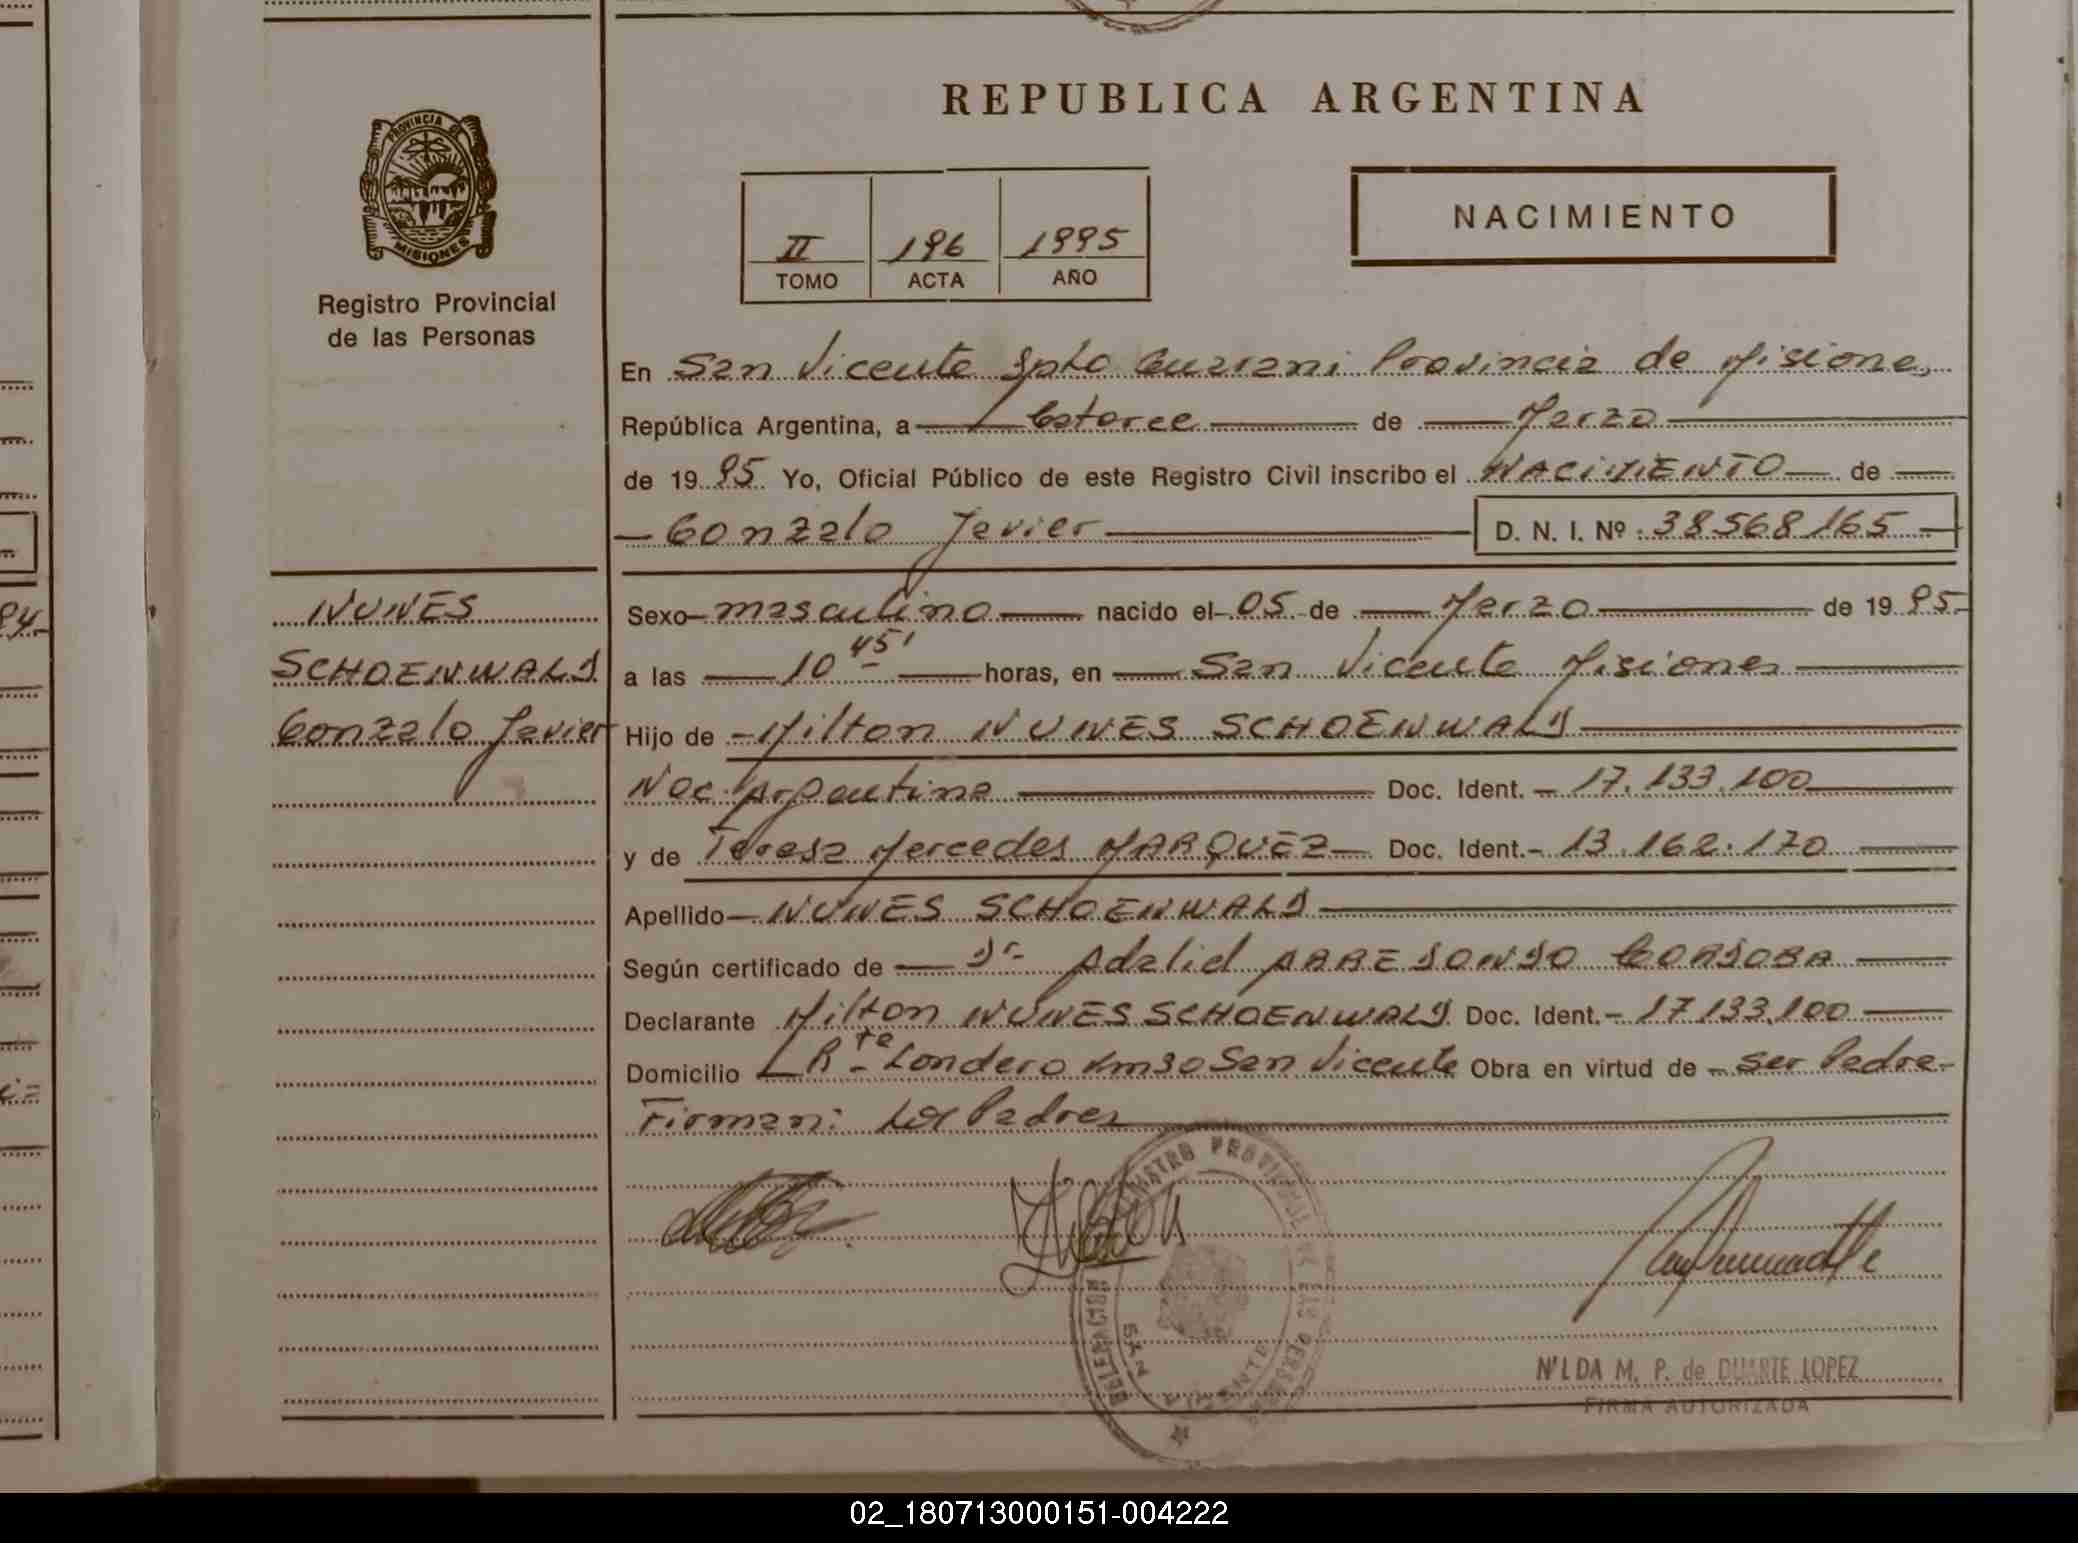 REPUBLICA ARGENTINA
PROVINCIA DE
MISIONES
Registro Provincial
de las Personas
II 196 1995
TOMO ACTA AÑO
NACIMIENTO
En San Vicente Dpto Guarani Provincia de Misiones
República Argentina, a Catorce de Marzo
de 19 95 Yo, Oficial Público de este Registro Civil inscribo el NACIMIENTO de
Gonzalo Javier D. N. I. Nº : 38568165
NUNES
SCHOENWALD
Gonzalo Javier
Sexo masculino nacido el 05 de Marzo de 19 95
a las 10 45' horas, en San Vicente Misiones
Hijo de Milton NUNES SCHOENWALD
Nac. Argentina Doc. Ident. 17.133.100
y de Teresa Mercedes MARQUEZ Doc. Ident. 13.162.170
Apellido NUNES SCHOENWALD
Según certificado de Dr Adalid ARREDONDO CORDOBA
Declarante Milton NUNES SCHOENWALD Doc. Ident. 17.133.100
Domicilio Rte Londero Km30 San Vicente Obra en virtud de ser Padre
Firman: Los Padres
REGISTRO PROVINCIAL DE LAS PERSONAS
DELEGACION
SAN VICENTE
NILDA M. P. de DUARTE LOPEZ
FIRMA AUTORIZADA
02_180713000151-004222